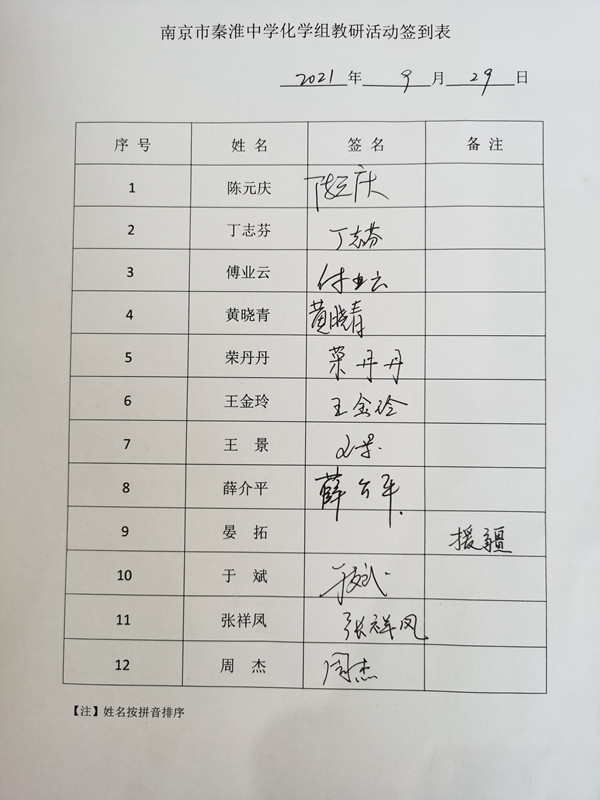 南京市秦淮中学化学组教研活动签到表
2021 年 9 月 29 日
序号 姓名 签名 备注
1 陈元庆 陈元庆
2 丁志芬 丁志芬
3 傅业云 付业云
4 黄晓青 黄晓青
5 荣丹丹 荣丹丹
6 王金玲 王金玲
7 王 景 王景
8 薛介平 薛介平
9 晏 拓 援疆
10 于 斌 于斌
11 张祥凤 张祥凤
12 周 杰 周杰
【注】姓名按拼音排序